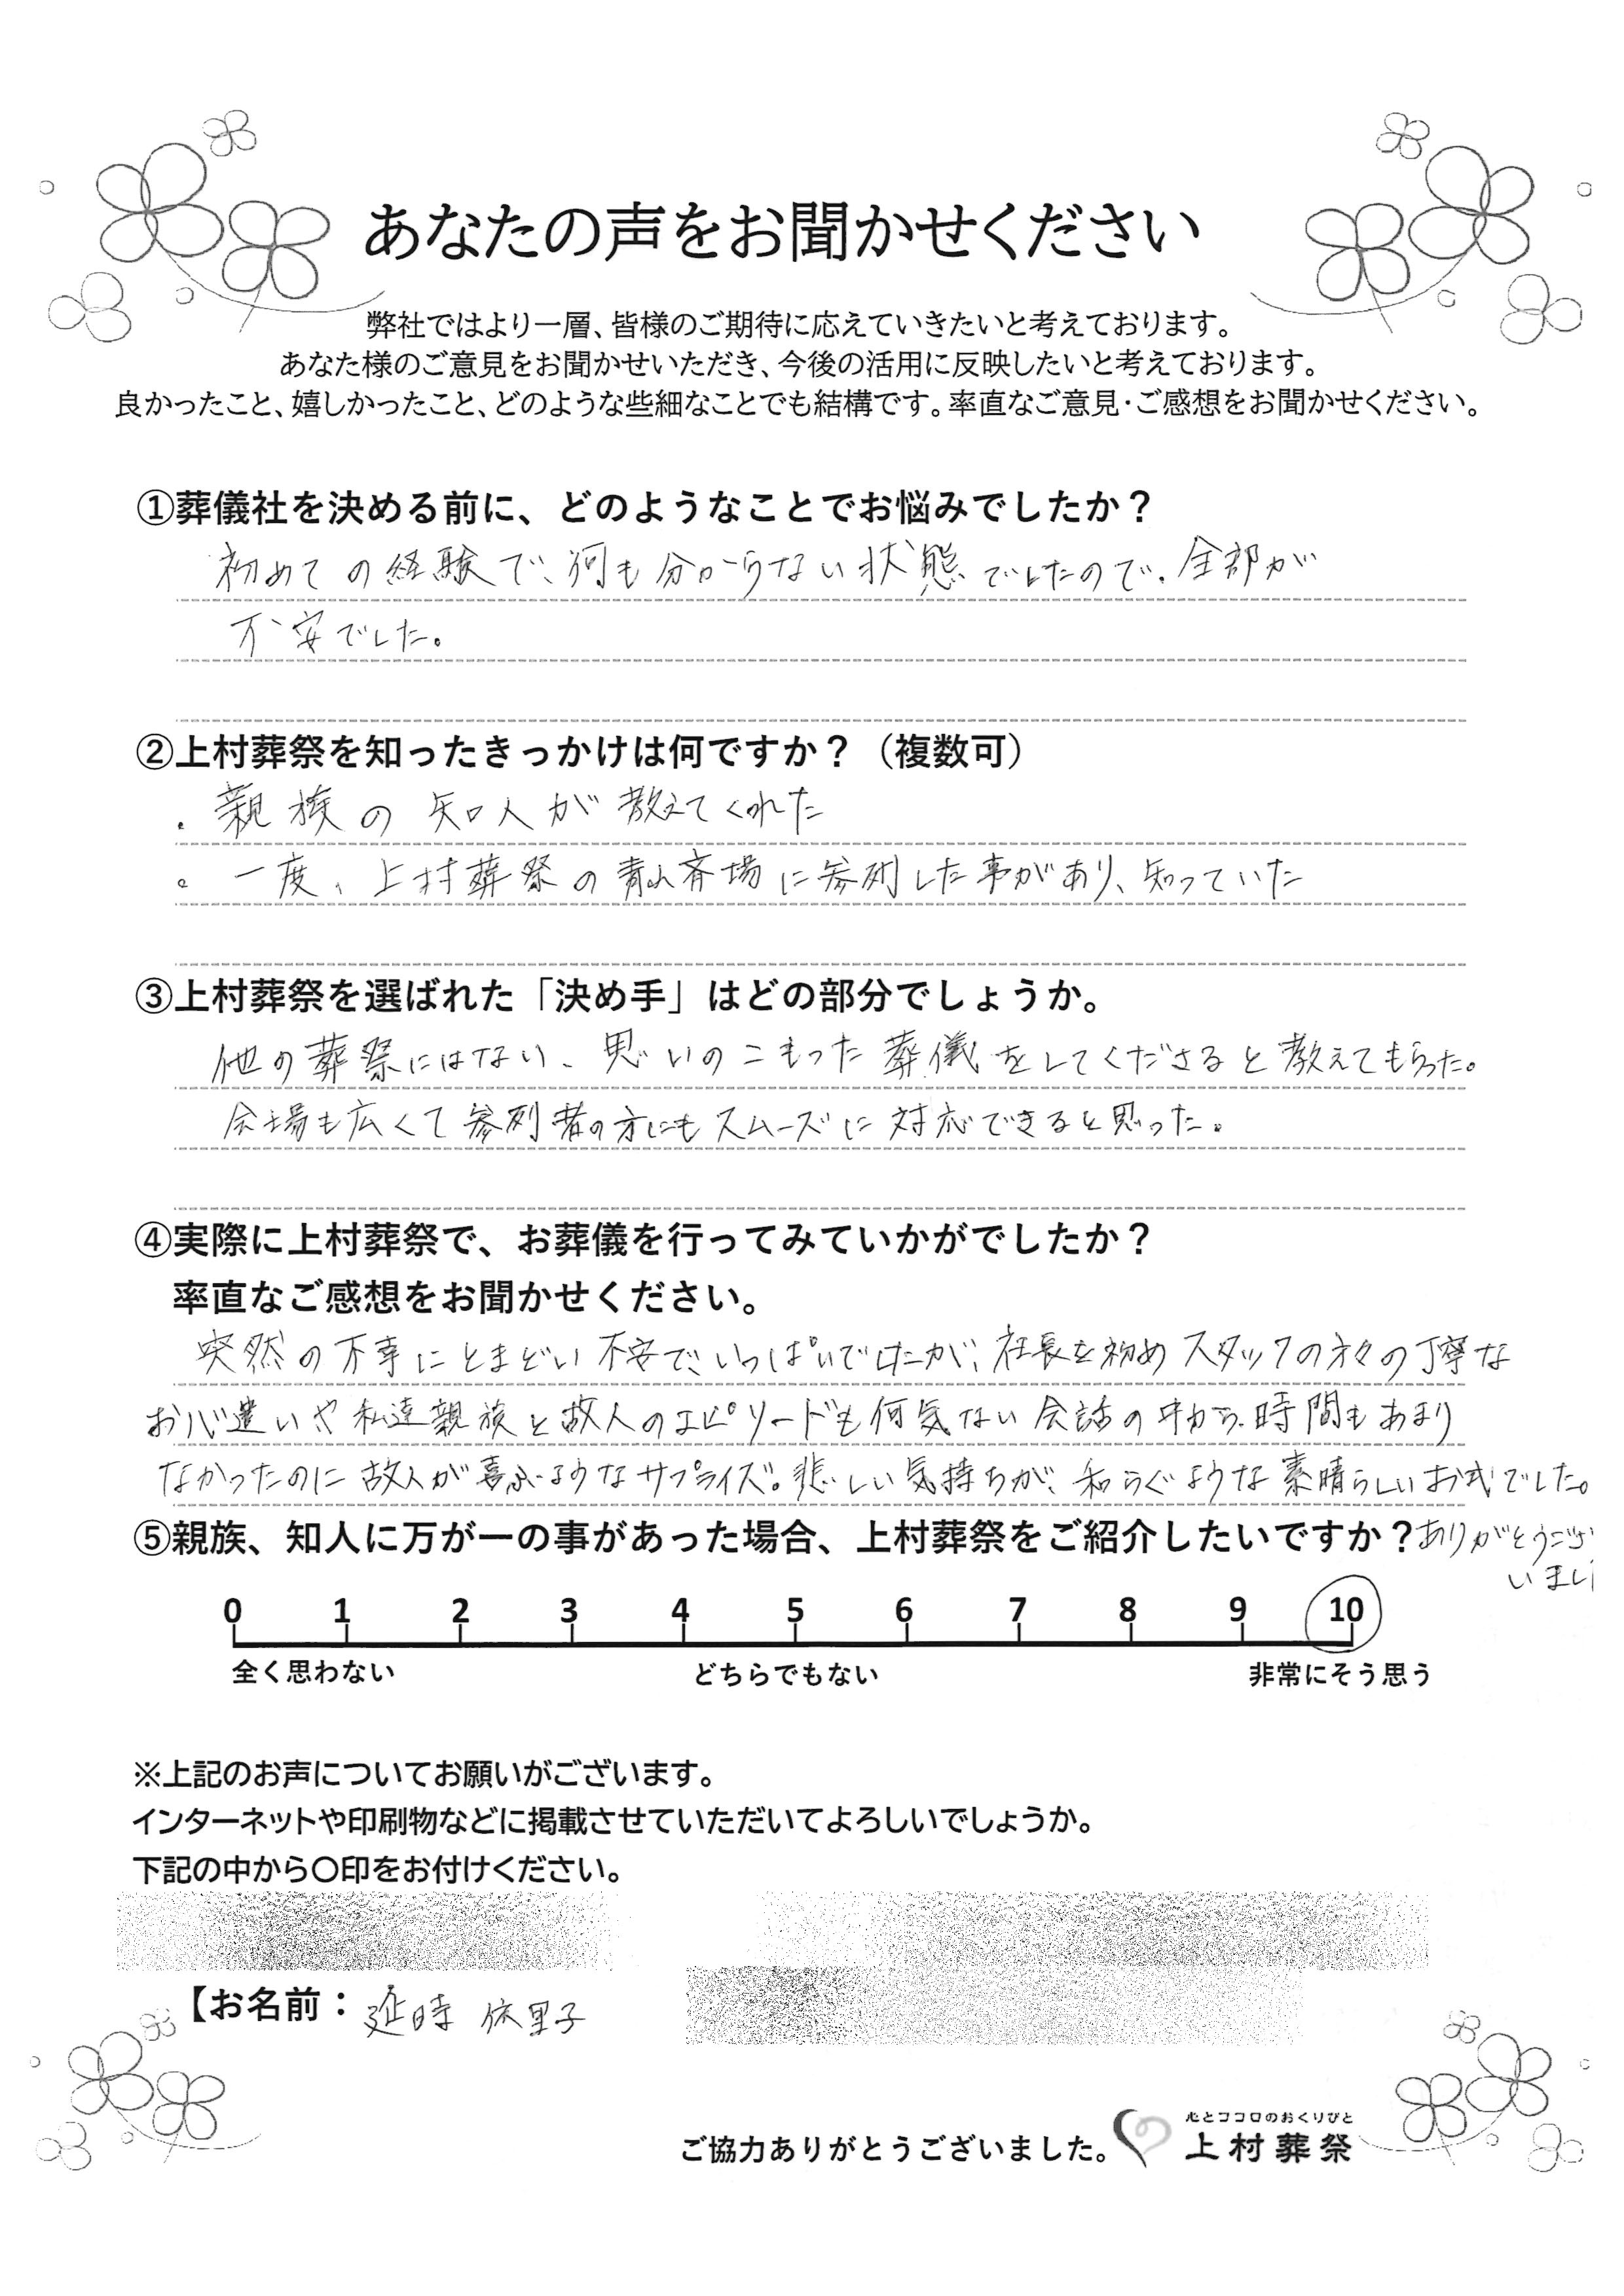 あなたの声をお聞かせください
弊社ではより一層、皆様のご期待に応えていきたいと考えております。
あなた様のご意見をお聞かせいただき、今後の活用に反映したいと考えております。
良かったこと、嬉しかったこと、どのような些細なことでも結構です。率直なご意見・ご感想をお聞かせください。
①葬儀社を決める前に、どのようなことでお悩みでしたか？
初めての経験で、何も分からない状態でしたので、全部が
不安でした。
②上村葬祭を知ったきっかけは何ですか？（複数可）
・親族の知人が教えてくれた
・一度、上村葬祭の斎場に参列した事があり、知っていた
③上村葬祭を選ばれた「決め手」はどの部分でしょうか。
他の葬祭にはない、思いのこもった葬儀をしてくださると教えてもらった。
会場も広くて参列者の方にもスムーズに対応できると思った。
④実際に上村葬祭で、お葬儀を行ってみていかがでしたか？
率直なご感想をお聞かせください。
突然の不幸にとまどい不安で、いっぱいでしたが、社長を初めスタッフの方々の丁寧な
お心遣いや私達親族と故人のエピソードも何気ない会話の中から、時間もあまり
なかったのに故人が喜ぶようなサプライズ。悲しい気持ちが、和らぐような素晴らしいお式でした。
⑤親族、知人に万が一の事があった場合、上村葬祭をご紹介したいですか？
ありがとうござ
いまし
0 1 2 3 4 5 6 7 8 9 10
全く思わない どちらでもない 非常にそう思う
※上記のお声についてお願いがございます。
インターネットや印刷物などに掲載させていただいてよろしいでしょうか。
下記の中から〇印をお付けください。
【お名前：延時 依里子
ご協力ありがとうございました。
心とココロのおくりびと
上村葬祭